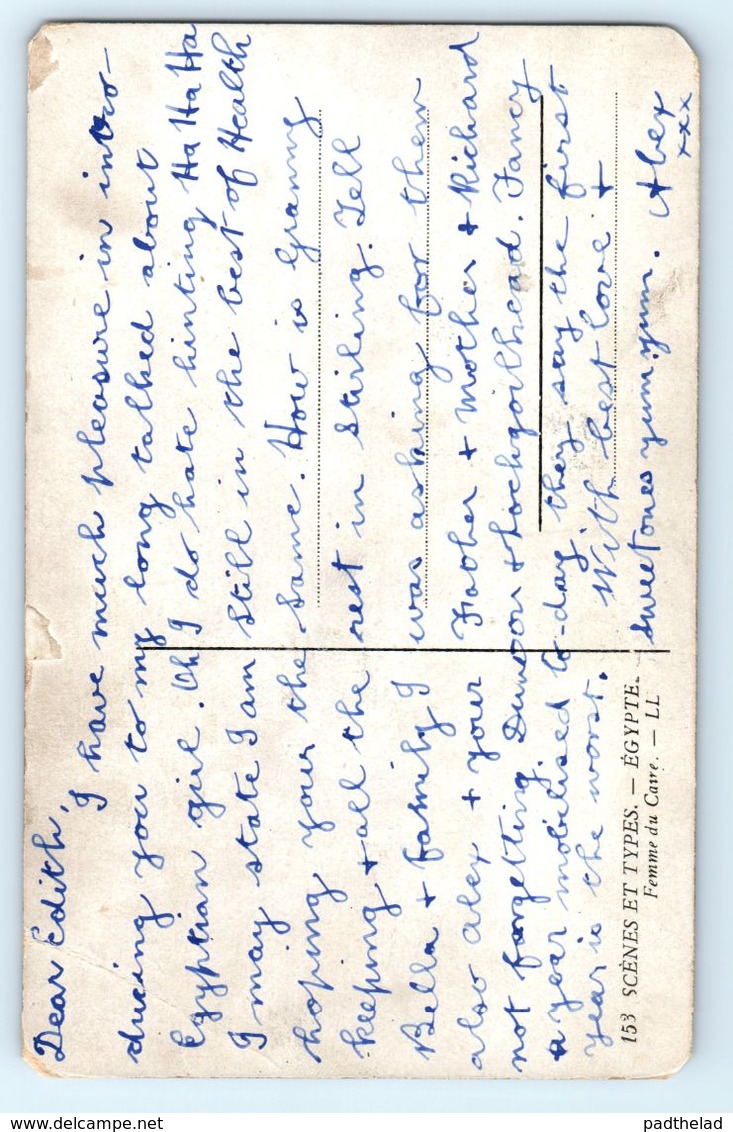 Dear Edith,
I have much pleasure in intro-
ducing you to my long talked about
Egyptian girl. Oh I do hate hinting Ha Ha Ha
I may state I am still in the best of Health
hoping your the same. How is Granny
keeping + all the rest in Stirling. Tell
Bella + family I was asking for them
also Alex + your Father + Mother + Richard
not forgetting Dunoon + Lochgoilhead. Fancy
a year mobilised to-day they say the first
year is the worst. With best love +
sweetones yum yum. Alex
xxx
153 SCÈNES ET TYPES. — ÉGYPTE.
Femme du Caire. — LL
padthelad
delcampe.net